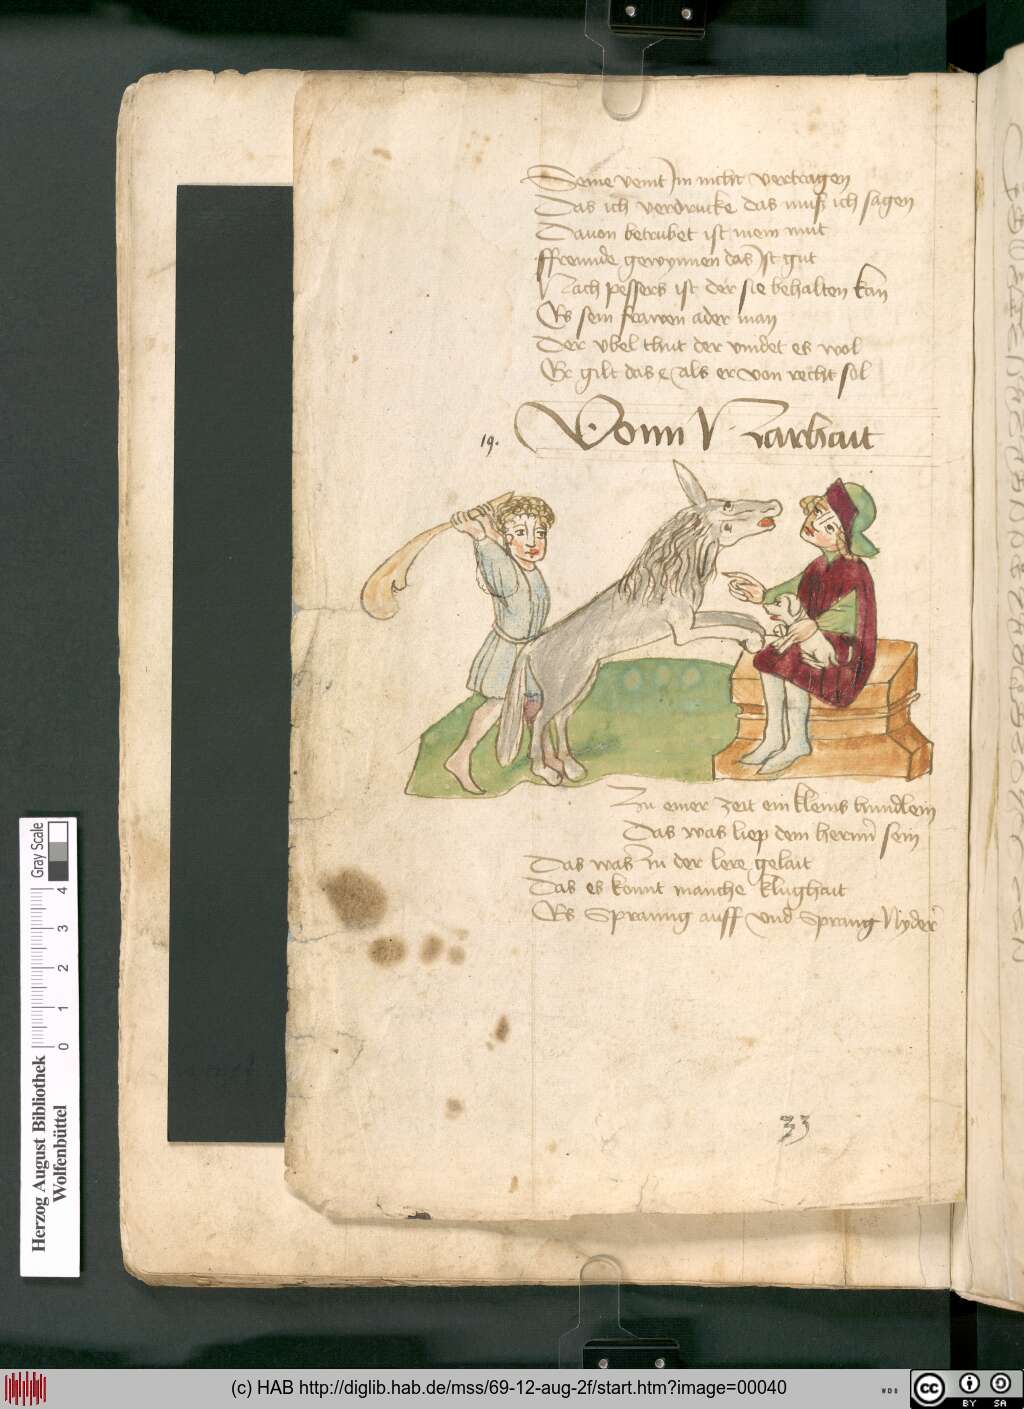 Seine veint Jn nicht vertragen
Das ich verdrucke das muß ich sagen
Dauon betrubet ist mein mut
ffreunde gewynnen das Jst gut
Nach pessers ist der sie behalten kan
Es sein frawen ader man
Der vbel thut der vindet es wol
Er gilt das e als er von recht sol
19. Vonn Narhait
Zu einer zeit ein kleins hundlein
Das was liep dem herrnn sein
Das was Jn der lere gelait
Das es konnt manche klughait
Es Spranng auff vnd Sprang Nyder
33
Gray Scale
4 3 2 1 0
Herzog August Bibliothek
Wolfenbüttel
(c) HAB http://diglib.hab.de/mss/69-12-aug-2f/start.htm?image=00040
WDB
cc BY SA